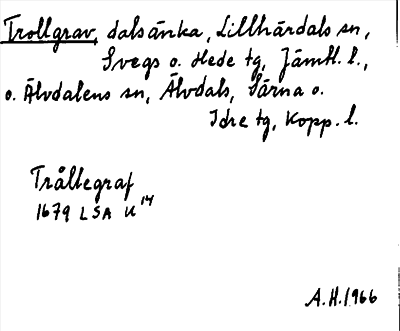 Trollgrav, dalsänka, Lillhärdals sn,
Svegs o. Hede tg, Jämtl. l.,
o. Älvdalens sn, Älvdals, Särna o.
Idre tg, Kopp. l.
Trållegraf
1679 LSA U 14
A.H. 1966